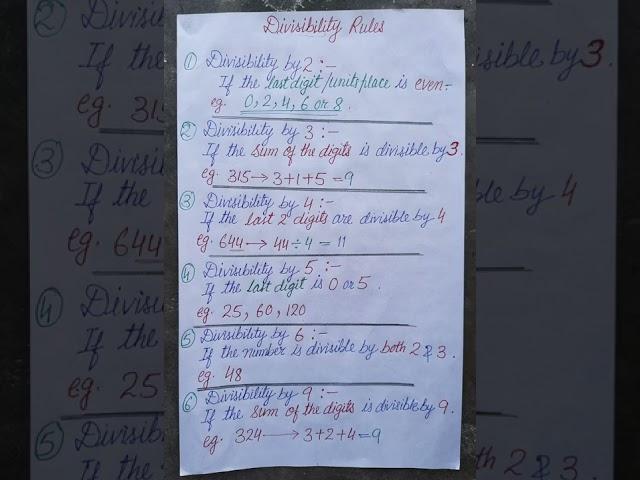 Divisibility Rules
① Divisibility by 2 :-
If the last digit /units place is even:-
eg. 0, 2, 4, 6 or 8.
② Divisibility by 3 :-
If the sum of the digits is divisible by 3.
eg. 315 → 3+1+5 = 9
③ Divisibility by 4 :-
If the last 2 digits are divisible by 4
eg. 644 → 44 ÷ 4 = 11
④ Divisibility by 5 :-
If the last digit is 0 or 5.
eg. 25, 60, 120
⑤ Divisibility by 6 :-
If the number is divisible by both 2 & 3.
eg. 48
⑥ Divisibility by 9 :-
If the sum of the digits is divisible by 9.
eg. 324 → 3+2+4=9
② Divisib
If the
eg. 315
③ Divisib
If the
eg. 644
④ Divisi
If the
eg. 25
⑤ Divisib
If the
sible by 3.
ble by 4
th 2 & 3.